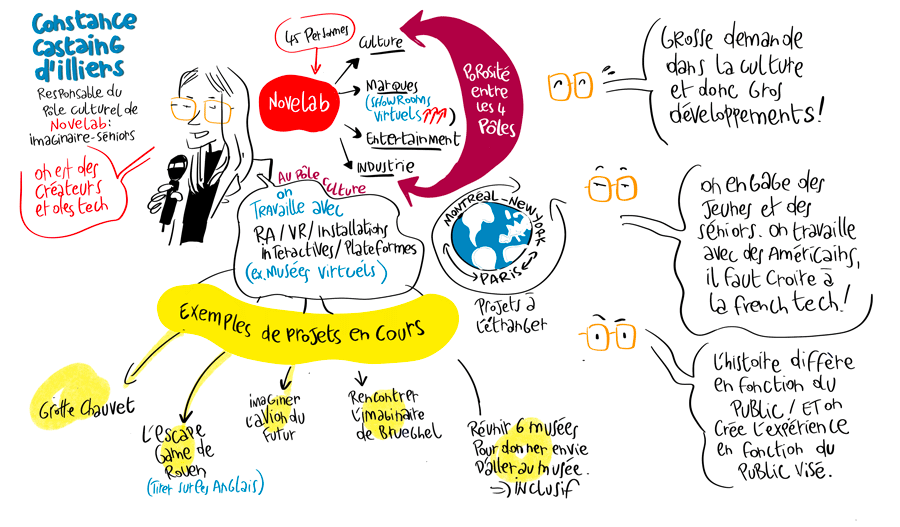 Constance
Castaing
d'illiers
Responsable du
Pôle culturel de
Novelab:
imaginaire-séniors
on est des
créateurs
et des tech
45 Personnes
Novelab
Culture
Marques
(Showrooms
virtuels)
Entertainment
Industrie
Porosité
entre
les 4
Pôles
Au Pôle Culture
on
Travaille avec
RA/VR/installations
interactives/Plateformes
(ex. Musées virtuels)
Montréal-New York
Paris
Projets à
l'étranger
Exemples de projets en cours
Grotte Chauvet
L'escape
Game de
Rouen
(Tirer sur les Anglais)
imaginer
l'avion du
Futur
Rencontrer
l'imaginaire
de Brueghel
Réunir 6 musées
Pour donner envie
D'aller au musée.
=> inclusif
Grosse demande
dans la culture
et donc Gros
développements!
on engage des
Jeunes et des
séniors. on travaille
avec des Américains,
il faut croire à
la french tech!
L'histoire diffère
en fonction du
Public / ET on
Crée l'expérience
en fonction du
Public visé.